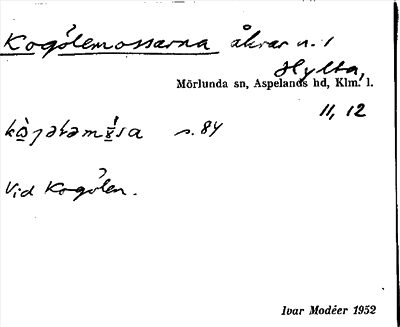 Kogölemossarna åkrar n. 1
Hylta,
Mörlunda sn, Aspelands hd, Klm. l.
11, 12
s. 84
Vid Kogölen.
Ivar Modéer 1952